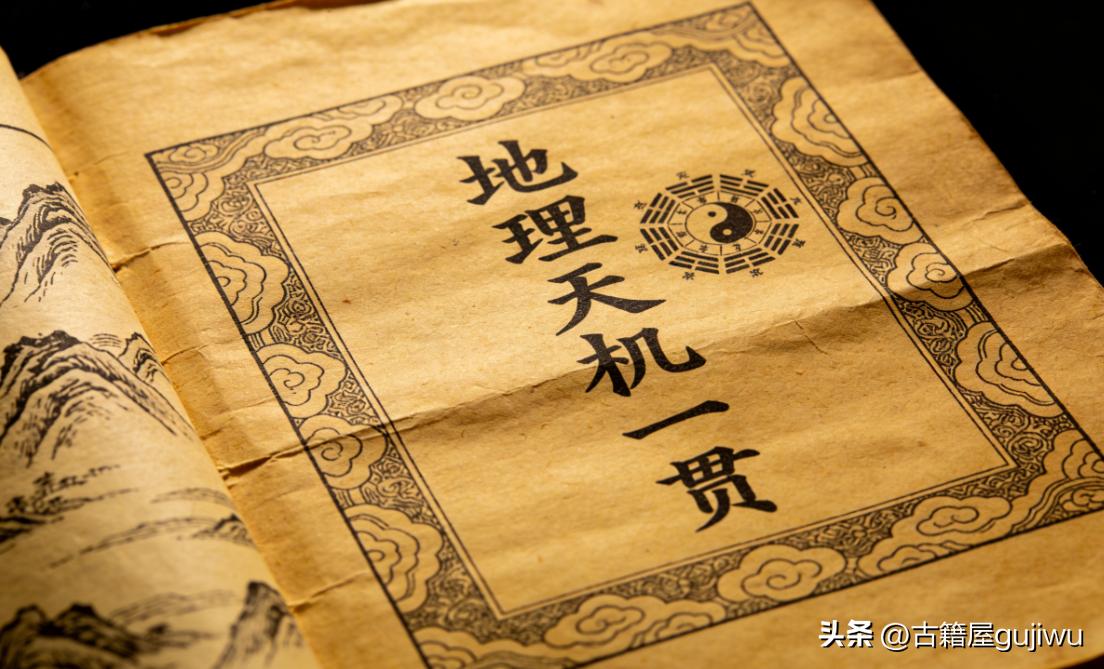 地理天机一贯
头条 @古籍屋gujiwu